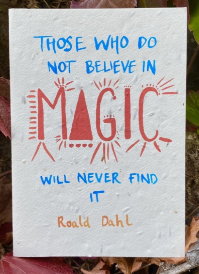 THOSE WHO DO
NOT BELIEVE IN
MAGIC
WILL NEVER FIND
IT
Roald Dahl